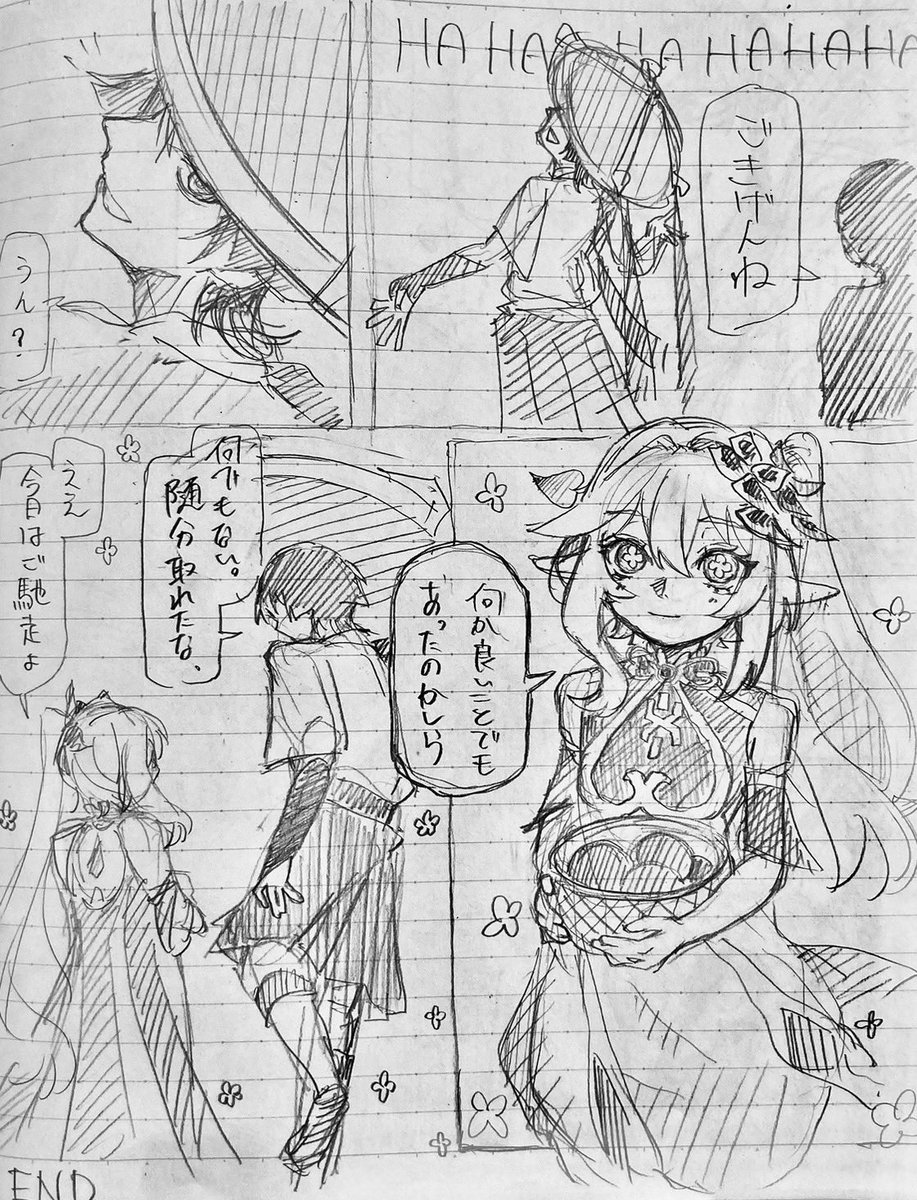 HA HA HA HAHAHA
ごきげんね
うん?
何か良いことでも
あったのかしら
何でもない。
随分取れたな、
ええ
今日はご馳走よ
END